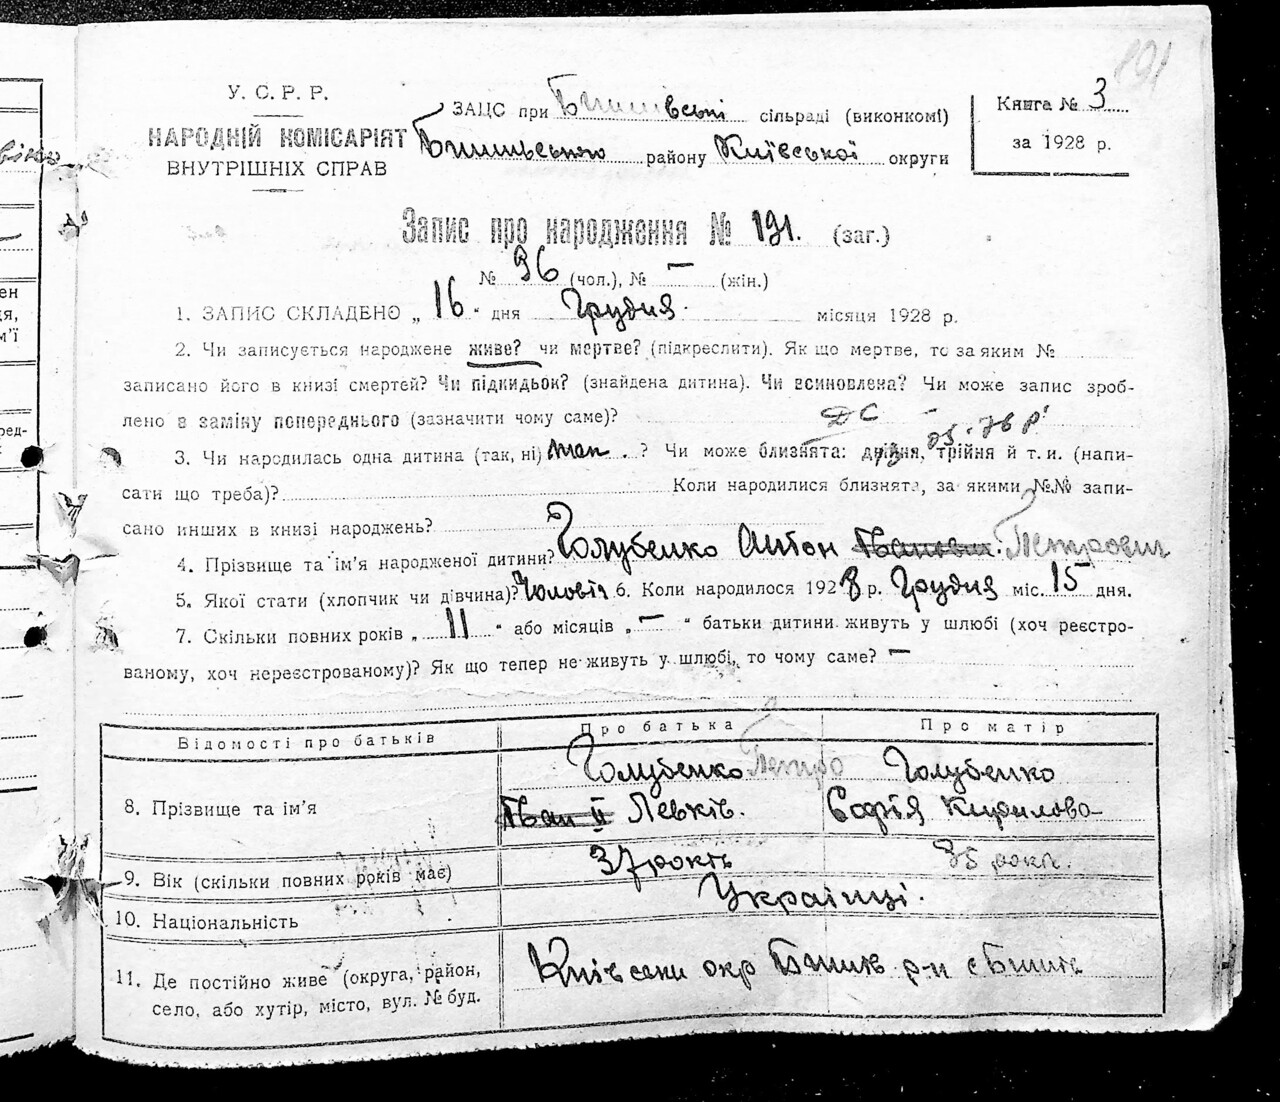 191
У. С. Р. Р.
НАРОДНІЙ КОМІСАРІЯТ
ВНУТРІШНІХ СПРАВ
ЗАЦС при сільраді (виконкомі)
району Київської округи
Книга № 3
за 1928 р.
Запис про народження № 191. (заг.)
№ 96 (чол.), № — (жін.)
1. ЗАПИС СКЛАДЕНО „ 16 " дня Грудня місяця 1928 р.
2. Чи записується народжене живе? чи мертве? (підкреслити). Як що мертве, то за яким №
записано його в книзі смертей? Чи підкидьок? (знайдена дитина). Чи всиновлена? Чи може запис зроб-
лено в заміну попереднього (зазначити чому саме)?
3. Чи народилась одна дитина (так, ні) так . ? Чи може близнята: двійня, трійня й т. и. (напи-
сати що треба)? Коли народилися близнята, за якими №№ запи-
сано инших в книзі народжень?
4. Прізвище та ім'я народженої дитини? Голубенко Антон Іванович. Петрович
5. Якої стати (хлопчик чи дівчина)? Чоловіч 6. Коли народилося 1928 р. Грудня міс. 15 дня.
7. Скільки повних років „ 11 " або місяців „ — " батьки дитини живуть у шлюбі (хоч реєстро-
ваному, хоч нереєстрованому)? Як що тепер не живуть у шлюбі, то чому саме? —
Відомості про батьків Про батька Про матір
8. Прізвище та ім'я Голубенко Петро Іван ІІ Левків. Голубенко Софія Кирилова
9. Вік (скільки повних років має) 37 років 35 років.
10. Національність Українці.
11. Де постійно живе (округа, район,
село, або хутір, місто, вул. № буд.